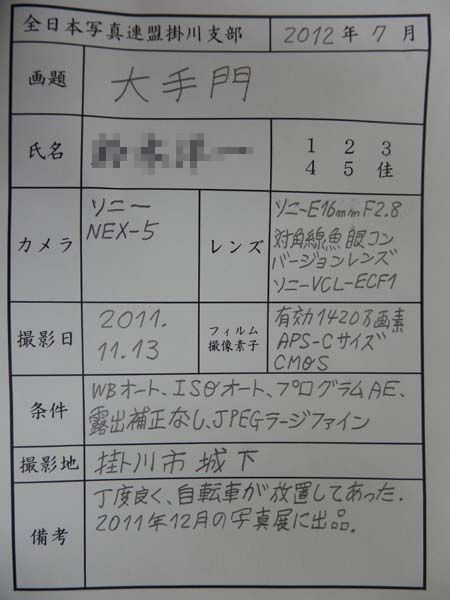 全日本写真連盟掛川支部 2012年7月
画題 大手門
氏名
1 2 3
4 5 佳
カメラ
ソニー
NEX-5
レンズ
ソニーE16mmF2.8
対角線魚眼コン
バージョンレンズ
ソニーVCL-ECF1
撮影日
2011.
11.13
フィルム
撮像素子
有効1420万画素
APS-Cサイズ
CMOS
条件
WBオート、ISOオート、プログラムAE、
露出補正なし、JPEGラージファイン
撮影地 掛川市城下
備考
丁度良く、自転車が放置してあった.
2011年12月の写真展に出品。